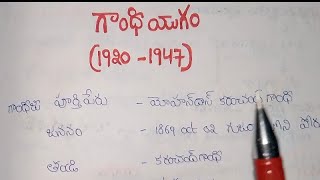 గాంధీ యుగం
(1920 - 1947)
పూర్తిపేరు - మోహన్‌దాస్ కరంచంద్ గాంధీ
జననం - 1869 oct 02
తండ్రి - కరంచంద్ గాంధీ